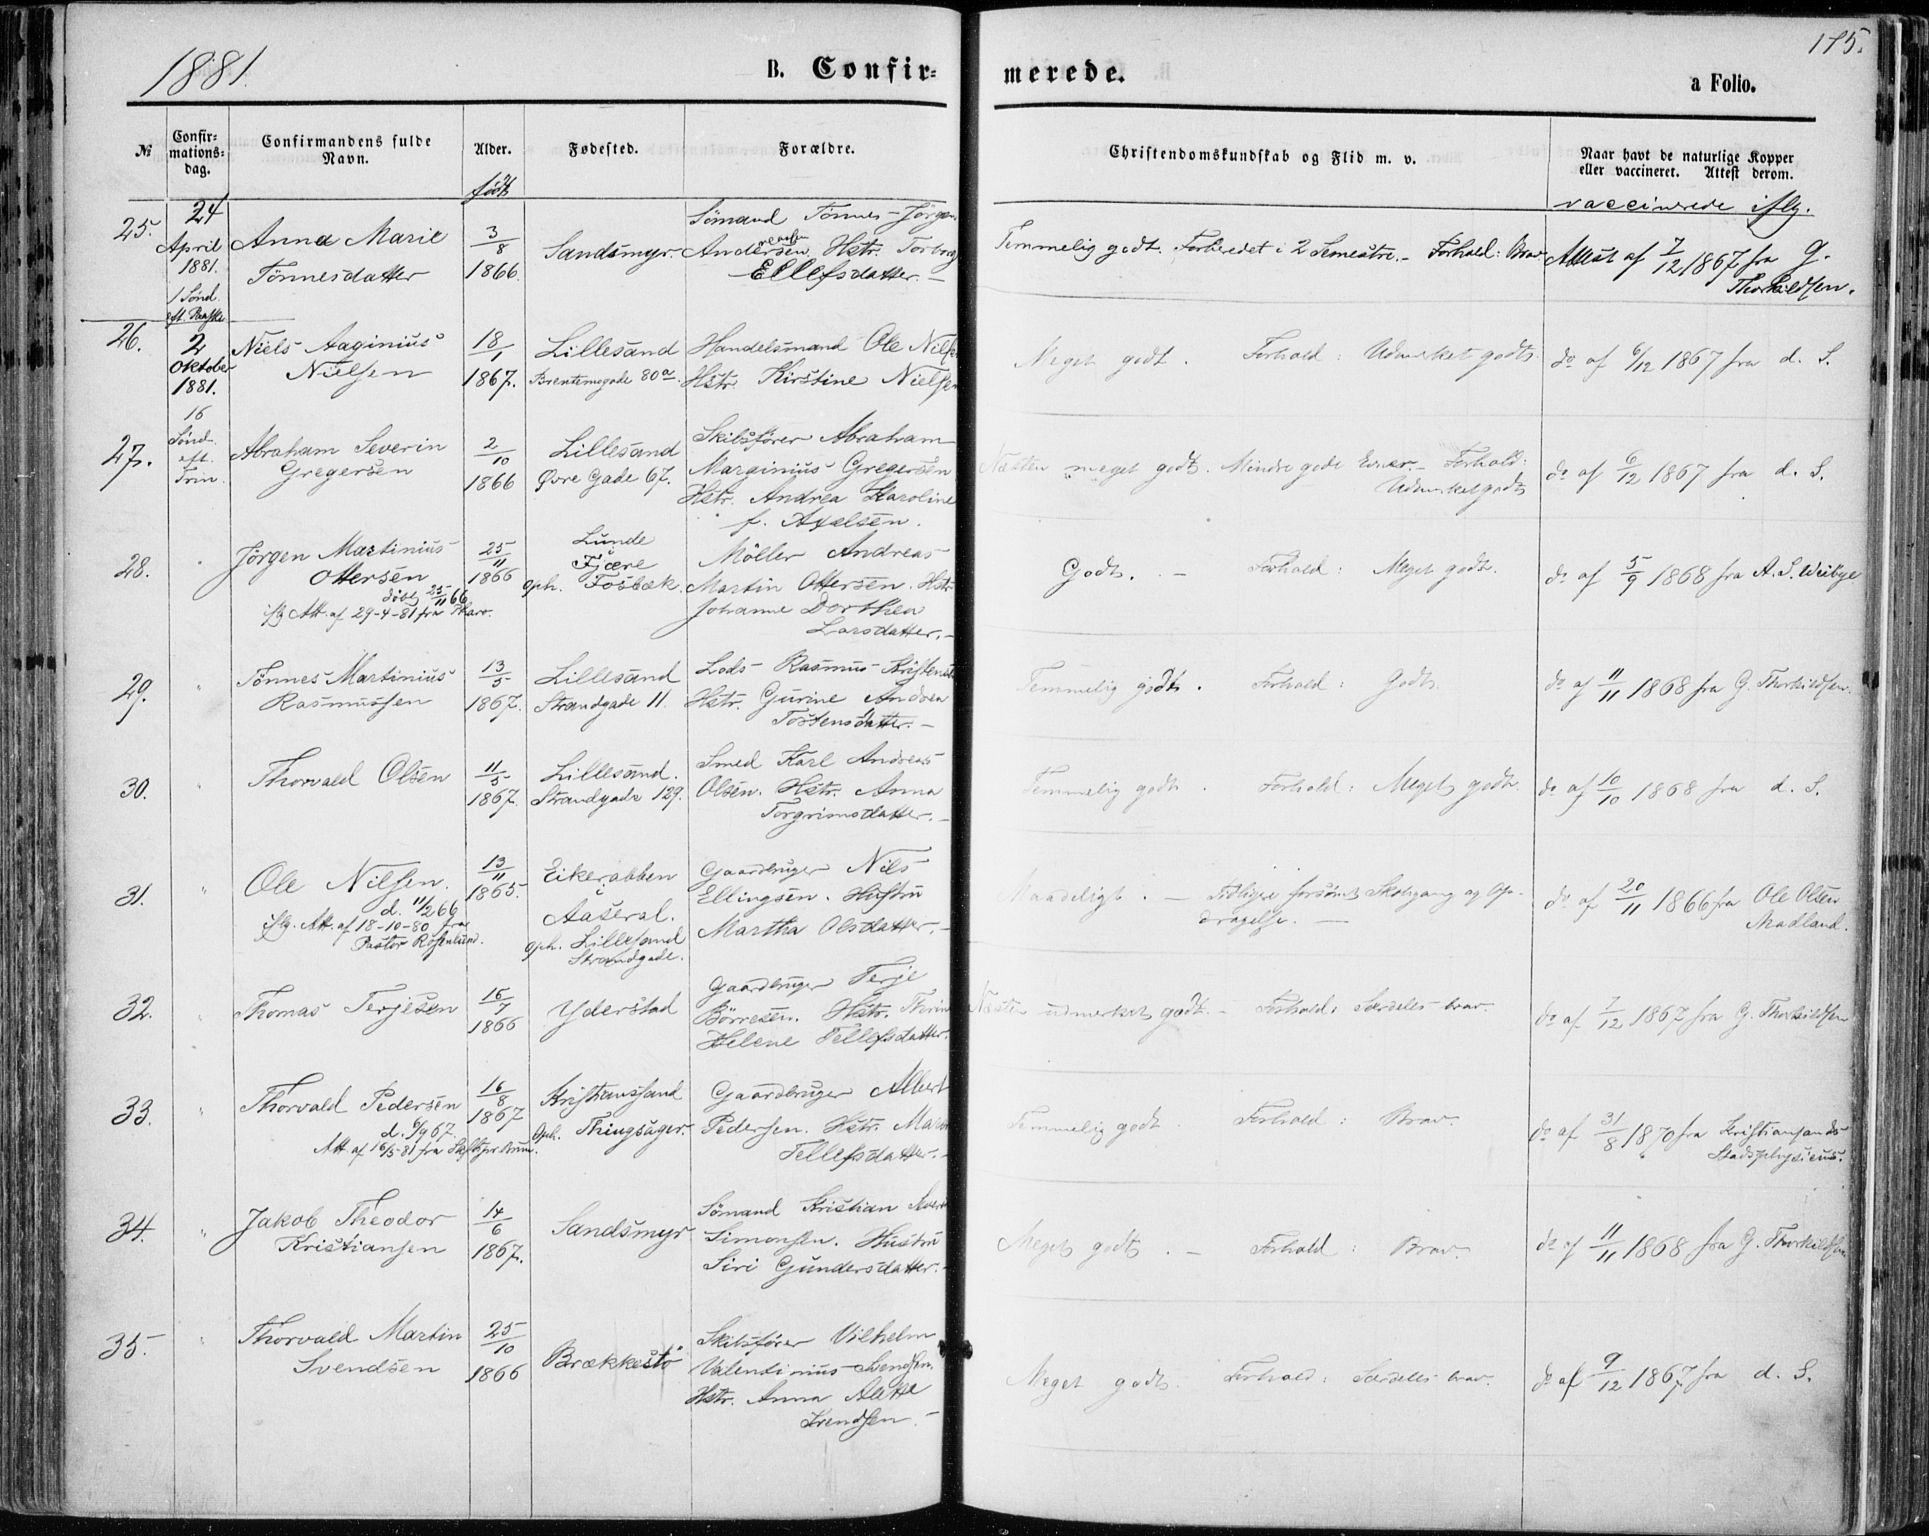 1881.
B. Confir-
merede.
175.
a Folio.
№
Confir-
mations-
dag.
Confirmandens fulde
Navn.
Alder.
Fødested.
Forældre.
Christendomskundskab og Flid m. v.
Naar havt de naturlige Kopper
eller vaccineret. Attest derom.
født
vaccinerede iflg.
25.
24
April
1881.
1 Sønd.
eft. Paaske
Anna Marie
Tönnesdatter
3/8
1866.
Sandsmyr.
Sömand Tönnes Jörgen
Andersen Hstr. Torborg
Ellefsdatter.
Temmelig godt. Forberedet i 2 Semestre. - Forhold: Brav
Attest af 7/12 1867 fra G.
Thorkildsen.
26.
2
Oktober
1881.
16
Sönd.
eft.
Trin.
Niels Aaginius
Nielsen
18/1
1867.
Lillesand
80a.
Handelsmand Ole Nilsen
Hstr. Kirstine Nielsen
Meget godt. Forhold: Udmerket godt.
do af 6/12 1867 fra d. S.
27.
Abraham Severin
Gregersen
2/10
1866
Lillesand
Øvre Gade 67.
Skibsförer Abraham
Marginius Gregersen
Hstr. Andrea Karoline
f. Axelsen.
Næsten meget godt. Mindre gode Evner. - Forhold:
Udmerket godt
do af 6/12 1867 fra d. S.
28.
Jörgen Martinius
Ottersen
döbt 25/11 66
iflg Att. af 29-4-81 fra
25/11
1866
Lunde
i
Fjære
oph. Fosbæk.
Möller Andreas
Martin Ottersen. Hstr
Johanne Dorthea
Larsdatter. -
Godt. - Forhold: Meget godt.
do af 5/9 1868 fra A. S. Weibye
29.
Tönnes Martinius
Rasmussen
13/5
1867.
Lillesand
Strandgade 11.
Lods Rasmus Kristensen
Hstr. Gurine Andrea
Tostensdatter. -
Temmelig godt. Forhold: Godt.
do af 11/11 1868 fra G. Thorkildsen.
30.
Thorvald Olsen
11/5
1867.
Lillesand.
Strandgade 129.
Smed Karl Andreas
Olsen. Hstr. Anna
Torgrimsdatter. -
Temmelig godt. Forhold: Meget godt.
do af 10/10 1868 fra d. S.
31.
Ole Nilsen.
d. 11/2 66
iflg. Att. af 18-10-80 fra
Pastor Rosenlund.
13/11
1865.
Eikerabben
i
Aaseral.
oph. Lillesand
Strandgade.
Gaardbruger Nils
Ellingsen. Hustru
Martha Olsdatter. -
Maadeligt. - Tidligere forsömt Skolegang og Op-
dragelse. -
do af 20/11 1866 fra Ole Olsen
Aadland.
32.
Thomas Terjesen
15/7
1866
Yderstad
Gaardbruger Terje
Börresen. Hstr.
Helene Tellefsdatter.
Næsten udmerket godt. - Forhold: Særdeles brav.
do af 7/12 1867 fra G. Thorkildsen
33.
Thorvald Pedersen
d. 6/9 67.
Att. af 16/5-81 fra
16/8
1867
Kristianssand
Oph. Thingsager.
Gaardbruger Albert
Pedersen. Hstr.
Tellefsdatter. -
Temmelig godt Forhold: Brav.
do af 31/8 1870 fra Kristiansands
Stadsphysicus.
34.
Jakob Theodor
Kristiansen
14/6
1867.
Sandsmyr
Sömand Kristian
Simonsen. Hustru
Siri Gundersdatter. -
Meget godt. - Forhold: Brav.
do af 11/11 1868 fra G. Thorkildsen
35.
Thorvald Martin
Svendsen
25/10
1866
Brækkestö
Skibsförer Vilhelm
Valentinius Svendsen.
Hstr. Anna Alette
Svendsen. -
Meget godt. Forhold: Særdeles brav.
do af 9/12 1867 fra d. S.